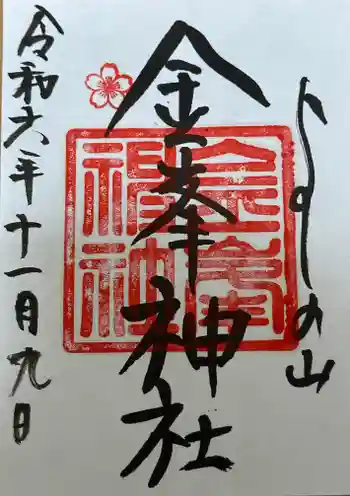 よしの山
金峯神社
金峯神社
令和六年十一月九日